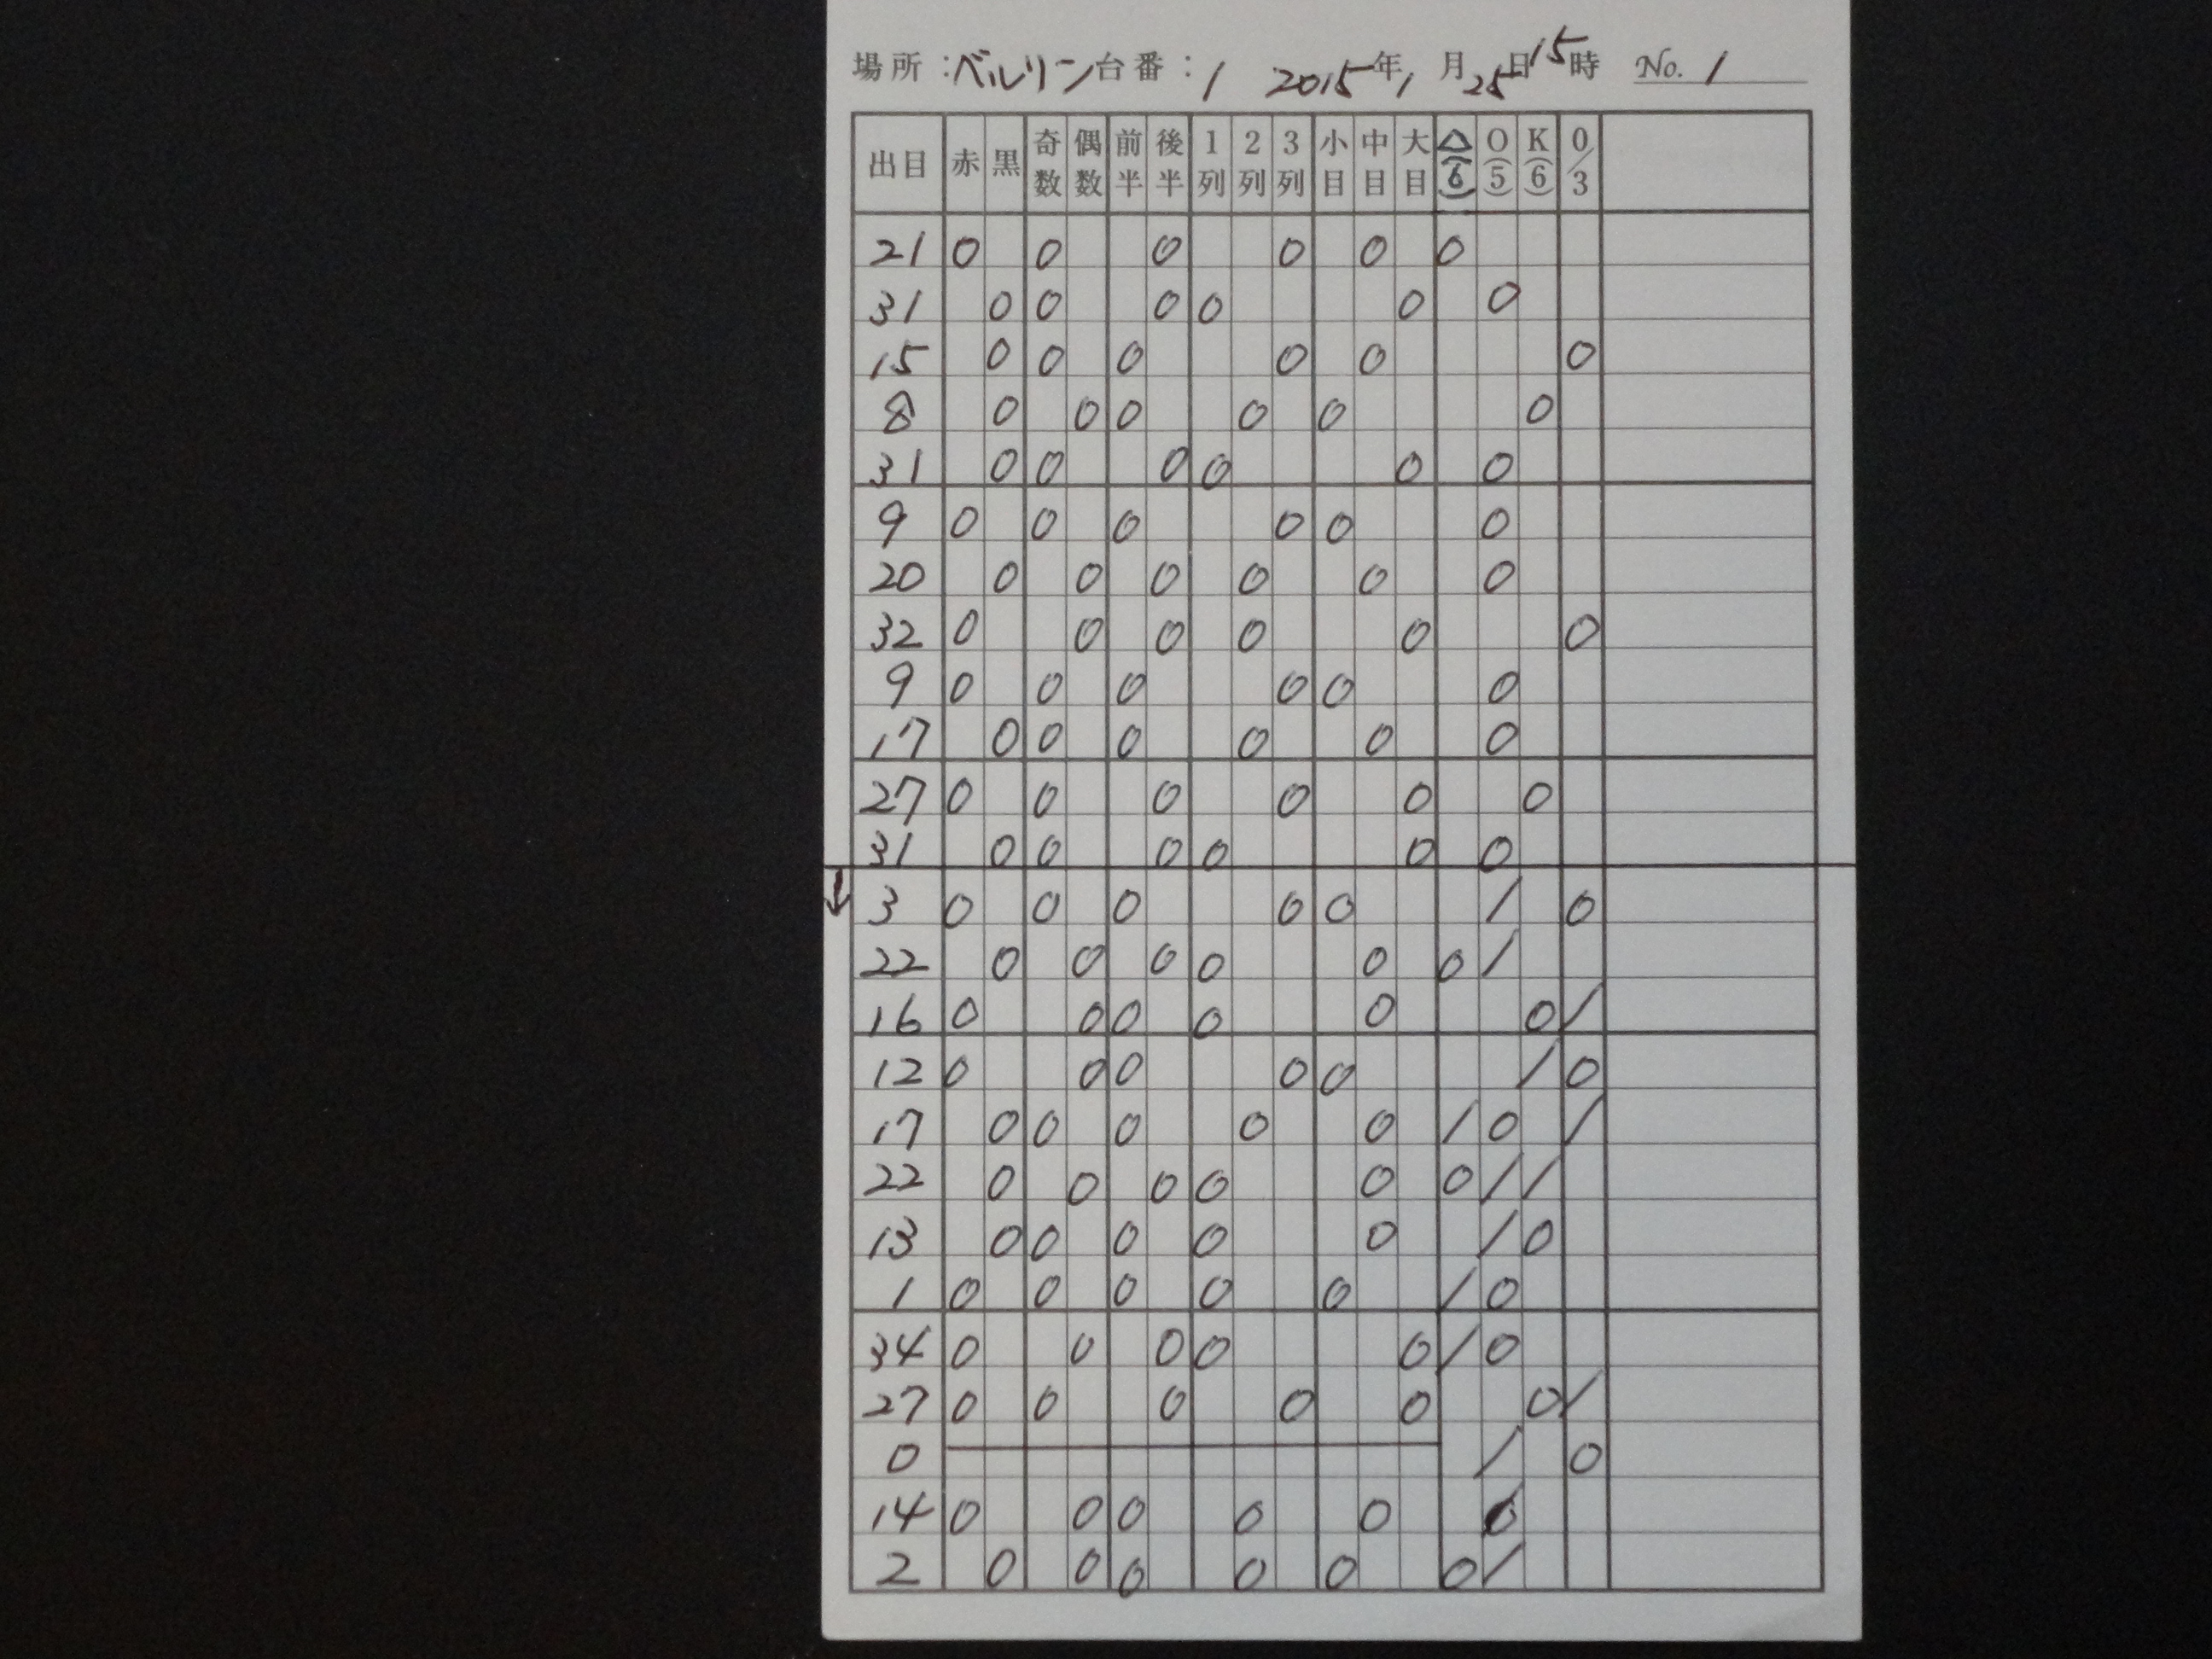 場所:ベルリン 台番:1 2015年1月25日15時 No. 1
出目 赤 黒 奇数 偶数 前半 後半 1列 2列 3列 小目 中目 大目 △(6) O(5) K(6) 0/3
21 0 0 0 0 0 0
31 0 0 0 0 0 0
15 0 0 0 0 0 0
8 0 0 0 0 0 0
31 0 0 0 0 0 0
9 0 0 0 0 0 0
20 0 0 0 0 0 0
32 0 0 0 0 0 0
9 0 0 0 0 0 0
17 0 0 0 0 0 0
27 0 0 0 0 0 0
31 0 0 0 0 0 0
↓ 3 0 0 0 0 0 / 0
22 0 0 0 0 0 0 /
16 0 0 0 0 0 0 /
12 0 0 0 0 0 / 0
17 0 0 0 0 0 / 0 /
22 0 0 0 0 0 0 / /
13 0 0 0 0 0 / 0
1 0 0 0 0 0 / 0
34 0 0 0 0 0 / 0
27 0 0 0 0 0 0 /
0 / 0
14 0 0 0 0 0 0
2 0 0 0 0 0 0 /